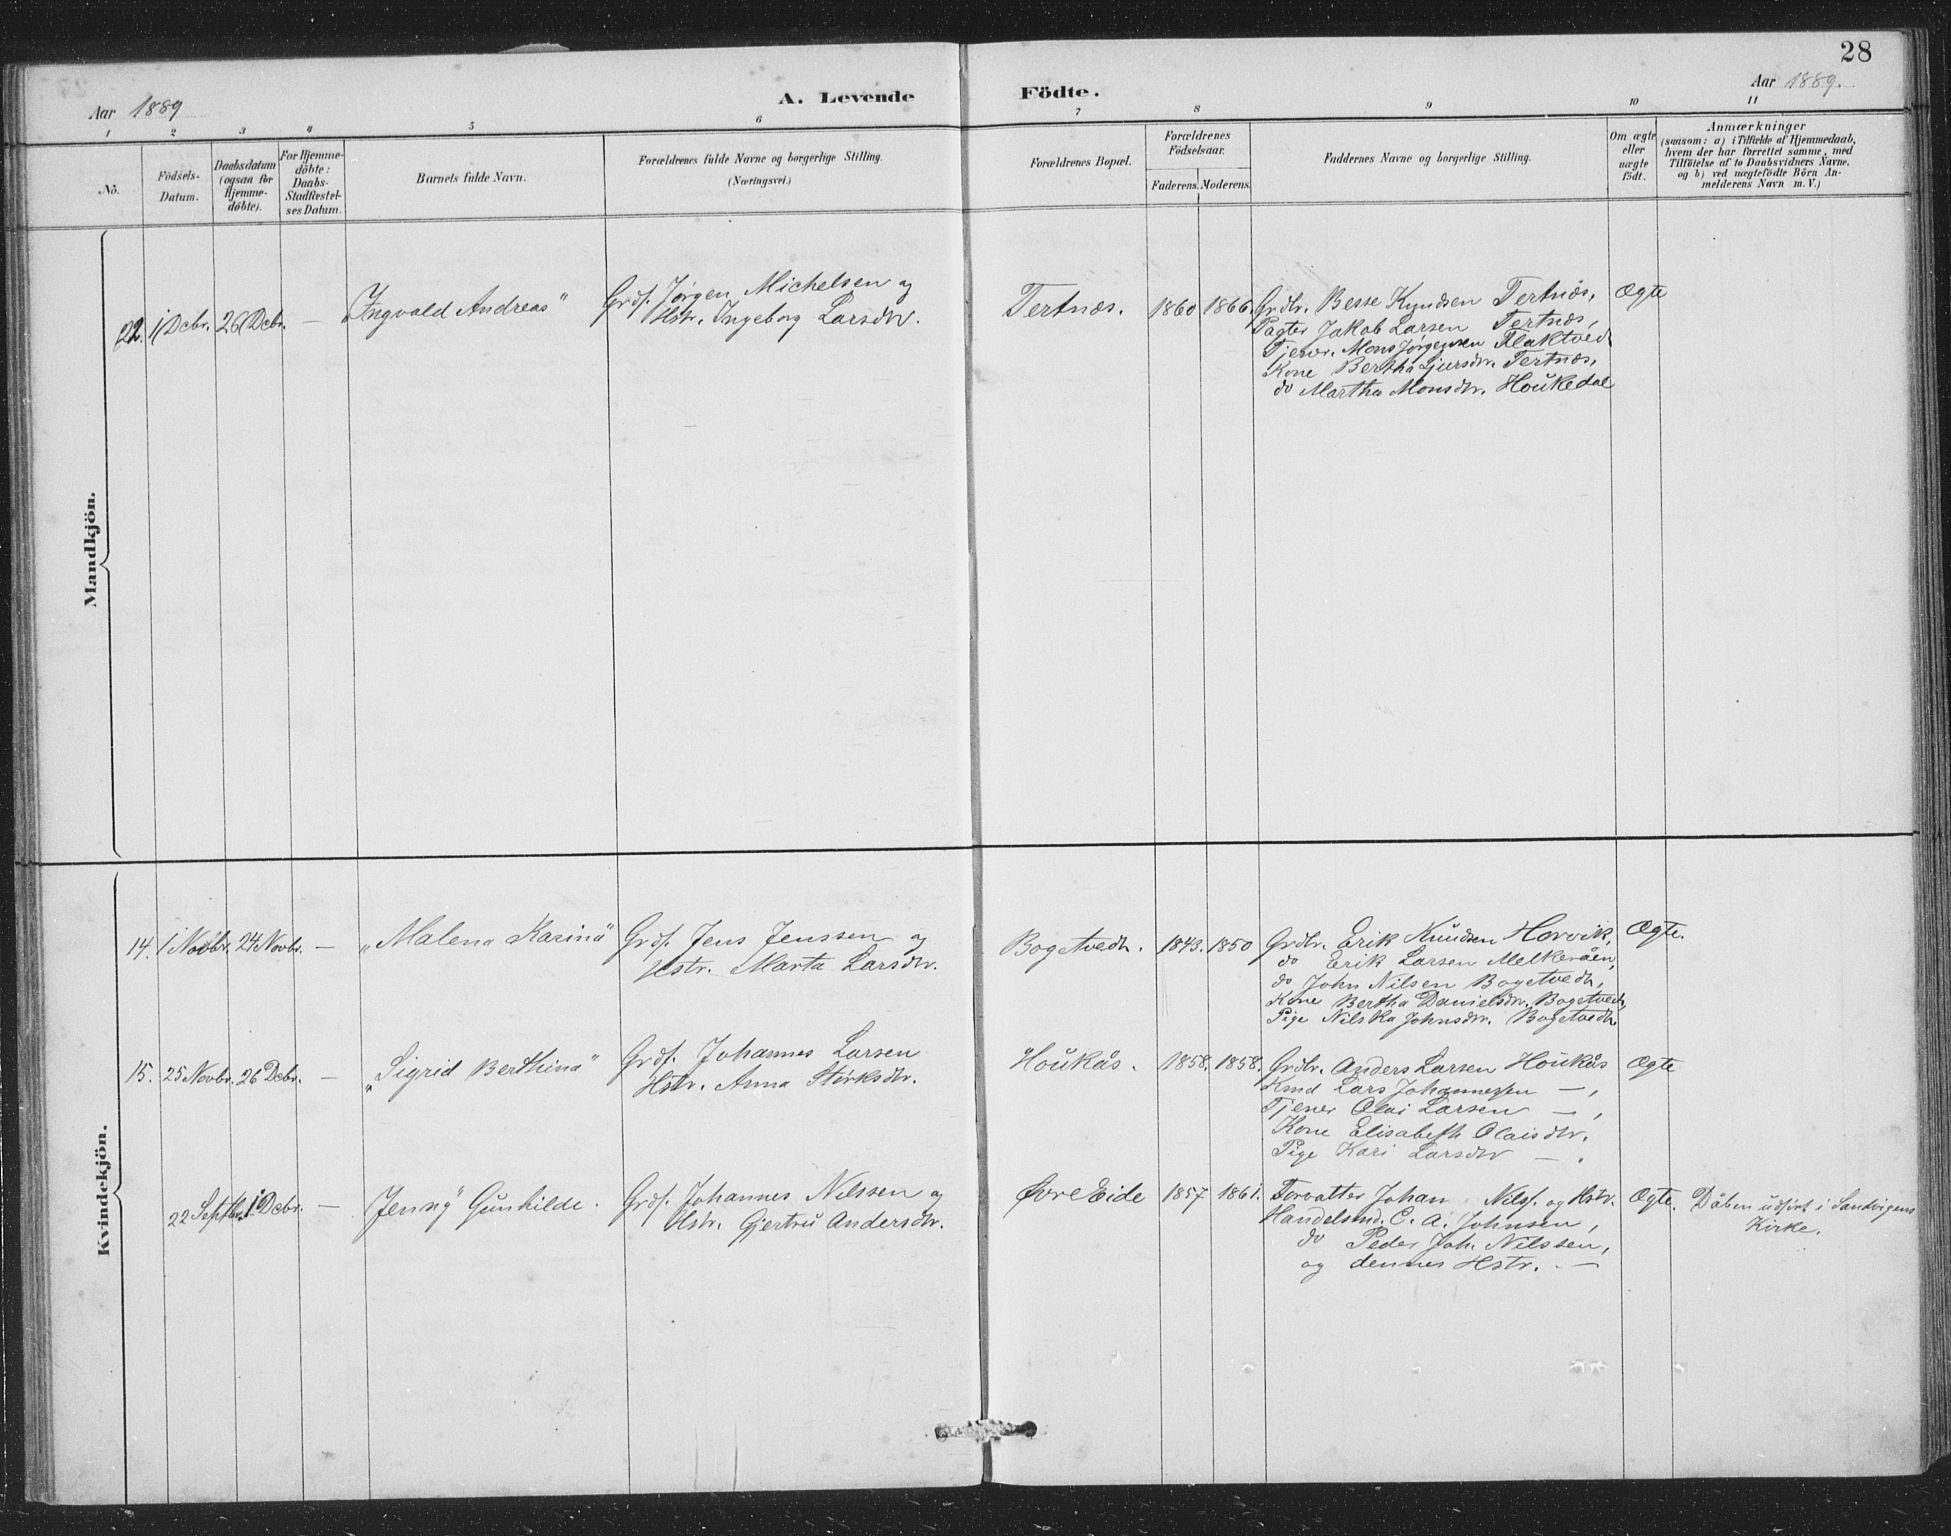 28
Aar 1889
A. Levende Födte.
Aar 1889.
1 2 3 4 5 6 7 8 9 10 11
No.
Födsels-
Datum.
Daabsdatum
(ogsaa for
Hjemme-
döbte).
For Hjemme-
döbte:
Daabs-
Stadfæstel-
ses Datum.
Barnets fulde Navn.
Forældrenes fulde Navne og borgerlige Stilling.
(Næringsvei.)
Forældrenes Bopæl.
Forældrenes
Födselsaar.
Faderens. Moderens.
Faddernes Navne og borgerlige Stilling.
Om ægte
eller
uægte
födt.
Anmærkninger
(saasom: a) i Tilfælde af Hjemmedaab,
hvem der har forrettet samme, med
Tilföielse af to Daabsvidners Navne.
og b) ved uægtefödte Börn An-
melderens Navn m. V.)
Mandkjön.
22. 1 Dcbr. 26 Dcbr. — Ingvald Andreas"
Grdf. Jørgen Michelsen og
Hstr. Ingeborg Larsdtr.
Tertnæs. 1860 1866
Grdbr. Besse Knudsen Tertnæs,
Pagter Jakob Larsen Tertnæs,
Tjener. Mons Jørgensen Flaktvedt
Kone Bertha Sjursdtr. Tertnæs,
do Martha Monsdtr. Houkedal
Ægte
Kvindekjön.
14. 1 Novbr. 24 Novbr. — „Malena Karina"
Grdf. Jens Jenssen og
Hstr. Marta Larsdtr.
Bogetvedt. 1843. 1850
Grdbr. Erik Knudsen Horvik,
do Erik Larsen Melkeråen,
do John Nilsen Bogetvedt,
Kone Bertha Danielsdtr. Bogetvedt,
Pige Nilska Johnsdtr. Bogetvedt
Ægte.
15. 25 Novbr. 26 Dcbr. — „Sigrid Berthina"
Grdf. Johannes Larsen
Hstr. Anna Størksdtr.
Houkås. 1858. 1858.
Grdbr. Anders Larsen Houkås
Kmd Lars Johannessen — ,
Tjener Olai Larsen — ,
Kone Elisabeth Olaisdtr.
Pige Kari Larsdtr — .
Ægte
22 Septbr. 1 Dcbr. — Jenny" Gunhilde.
Grdf. Johannes Nilssen og
Hstr. Gjertru Andersdtr.
Øvre Eide 1857 1861.
Forvalter Johan Nilss. og Hstr.
Handelsmd. C. A. Johnsen,
do Peder Joh. Nilssen,
og dennes Hstr. —
Ægte.
Dåben udført i Sandvigens
Kirke.